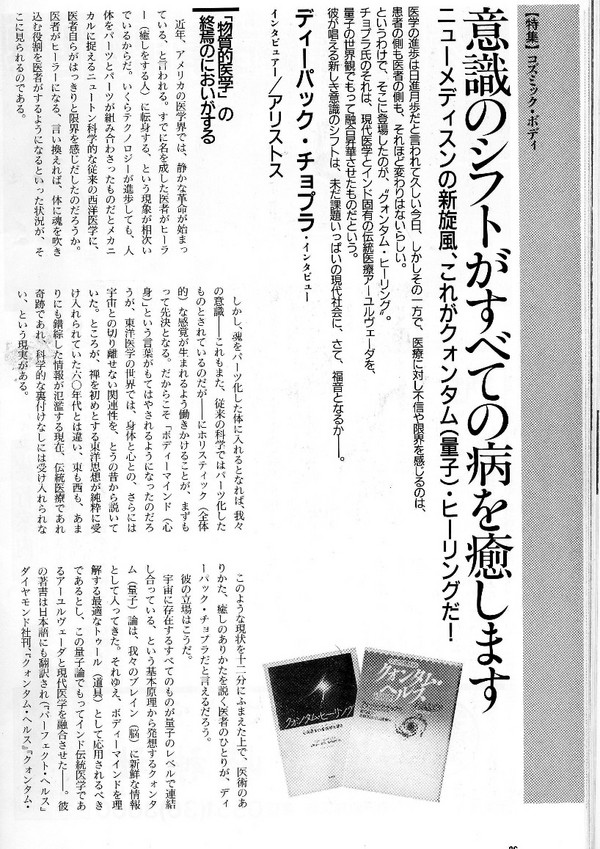 【特集】コズミック・ボディ
意識のシフトがすべての病を癒します
ニューメディスンの新旋風、これがクォンタム（量子）・ヒーリングだ！
医学の進歩は日進月歩だと言われて久しい今日、しかしその一方で、医療に対し不信や限界を感じるのは、
患者の側も医者の側も、それほど変わりはないらしい。
というわけで、そこに登場したのが、〝クォンタム・ヒーリング〟。
チョプラ氏のそれは、現代医学とインド固有の伝統医療アーユルヴェーダを、
量子の世界観でもって融合昇華させたものだという。
彼が唱える新しき意識のシフトは、未だ課題いっぱいの現代社会に、さて、福音となるか──。
ディーパック・チョプラ・インタビュー
インタビュアー／アリストス
「物質的医学」の
終焉のにおいがする
近年、アメリカの医学界では、静かな革命が始まっ
ている、と言われる。すでに名を成した医者がヒーラ
ー（癒しをする人）に転身する、という現象が相次い
でいるからだ。いくらテクノロジーが進歩しても、人
体をパーツとパーツが組み合さったものだとメカニ
カルに捉えるニュートン科学的な従来の西洋医学に、
医者自らがはっきりと限界を感じだしたのだろうか。
医者がヒーラーになる、言い換えれば、体に魂を吹き
込む役割を医者がするようになるといった状況が、そ
こに見られるのである。
しかし、魂をパーツ化した体に入れるとなれば、我々
の意識──これもまた、従来の科学ではパーツ化した
ものとされているのだが──にホリスティック（全体
的）な感覚が生まれるよう働きかけることが、まずも
って先決となる。だからこそ「ボディーマインド（心
身）」という言葉がもてはやされるようになったのだろ
うが、東洋医学の世界では、身体と心との、さらには
宇宙との切り離せない関連性を、とうの昔から説いて
いた。ところが、禅を初めとする東洋思想が純粋に受
け入れられていた六〇年代とは違い、東も西も、あま
りにも錯綜した情報が氾濫する現在、伝統医療であれ
奇跡であれ、科学的な裏付けなしには受け入れられな
い、という現実がある。
このような現状を十二分にふまえた上で、医術のあ
りかた、癒しのありかたを説く医者のひとりが、ディ
ーパック・チョプラだと言えるだろう。
彼の立場はこうだ。
宇宙に存在するすべてのものが量子のレベルで連結
し合っている、という基本原理から発想するクォンタ
ム（量子）論は、我々のブレイン（脳）に新鮮な情報
として入ってきた。それゆえ、ボディーマインドを理
解する最適なトゥール（道具）として応用されるべき
であるとし、この量子論でもってインド伝統医学であ
るアーユルヴェーダと現代医学を融合させた──。彼
の著書は日本語にも翻訳され（『パーフェクト・ヘルス』
ダイヤモンド社刊、『クォンタム・ヘルス』『クォンタム・
クォンタム・ヒーリング
クォンタム・
ヘルス